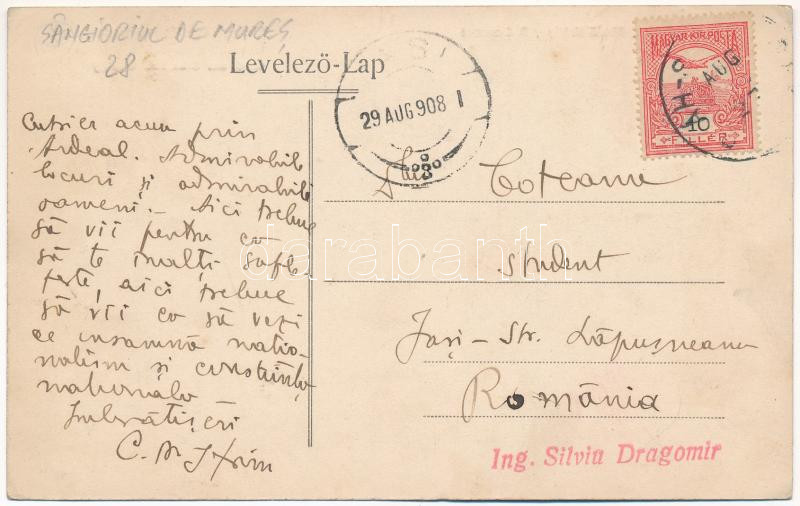 SÂNGIORIUL DE MUREȘ
28
Levelezö-Lap
29 AUG 908
MAGYAR KIR. POSTA
10
FILLÉR
AUG
Cutrier acum prin
Ardeal. Admirabile
locuri și admirabili
oameni. – Aici trebue
să vii pentru ca
să te inalți sufle-
tește, aici trebue
să vii ca să vezi
ce insamnă natio-
nalism și conștiință
națională
Imbrățișeri
C. M.
Coteanu
Student
Jași – Str. Lăpușneanu
România
Ing. Silviu Dragomir
darabanth